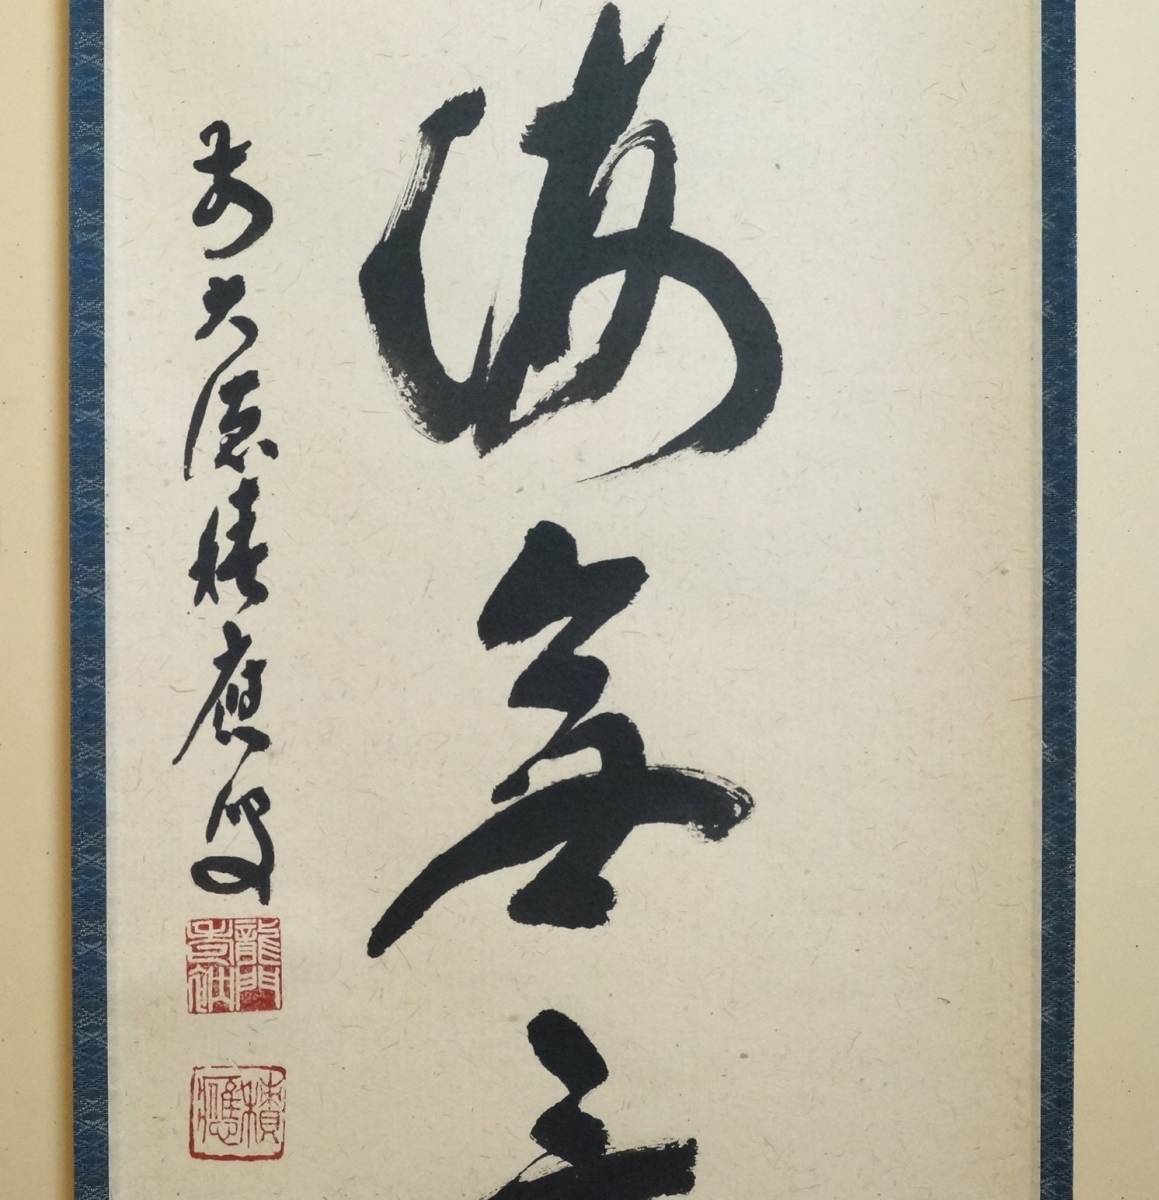 海無
前大德積應叟
龍門
積應